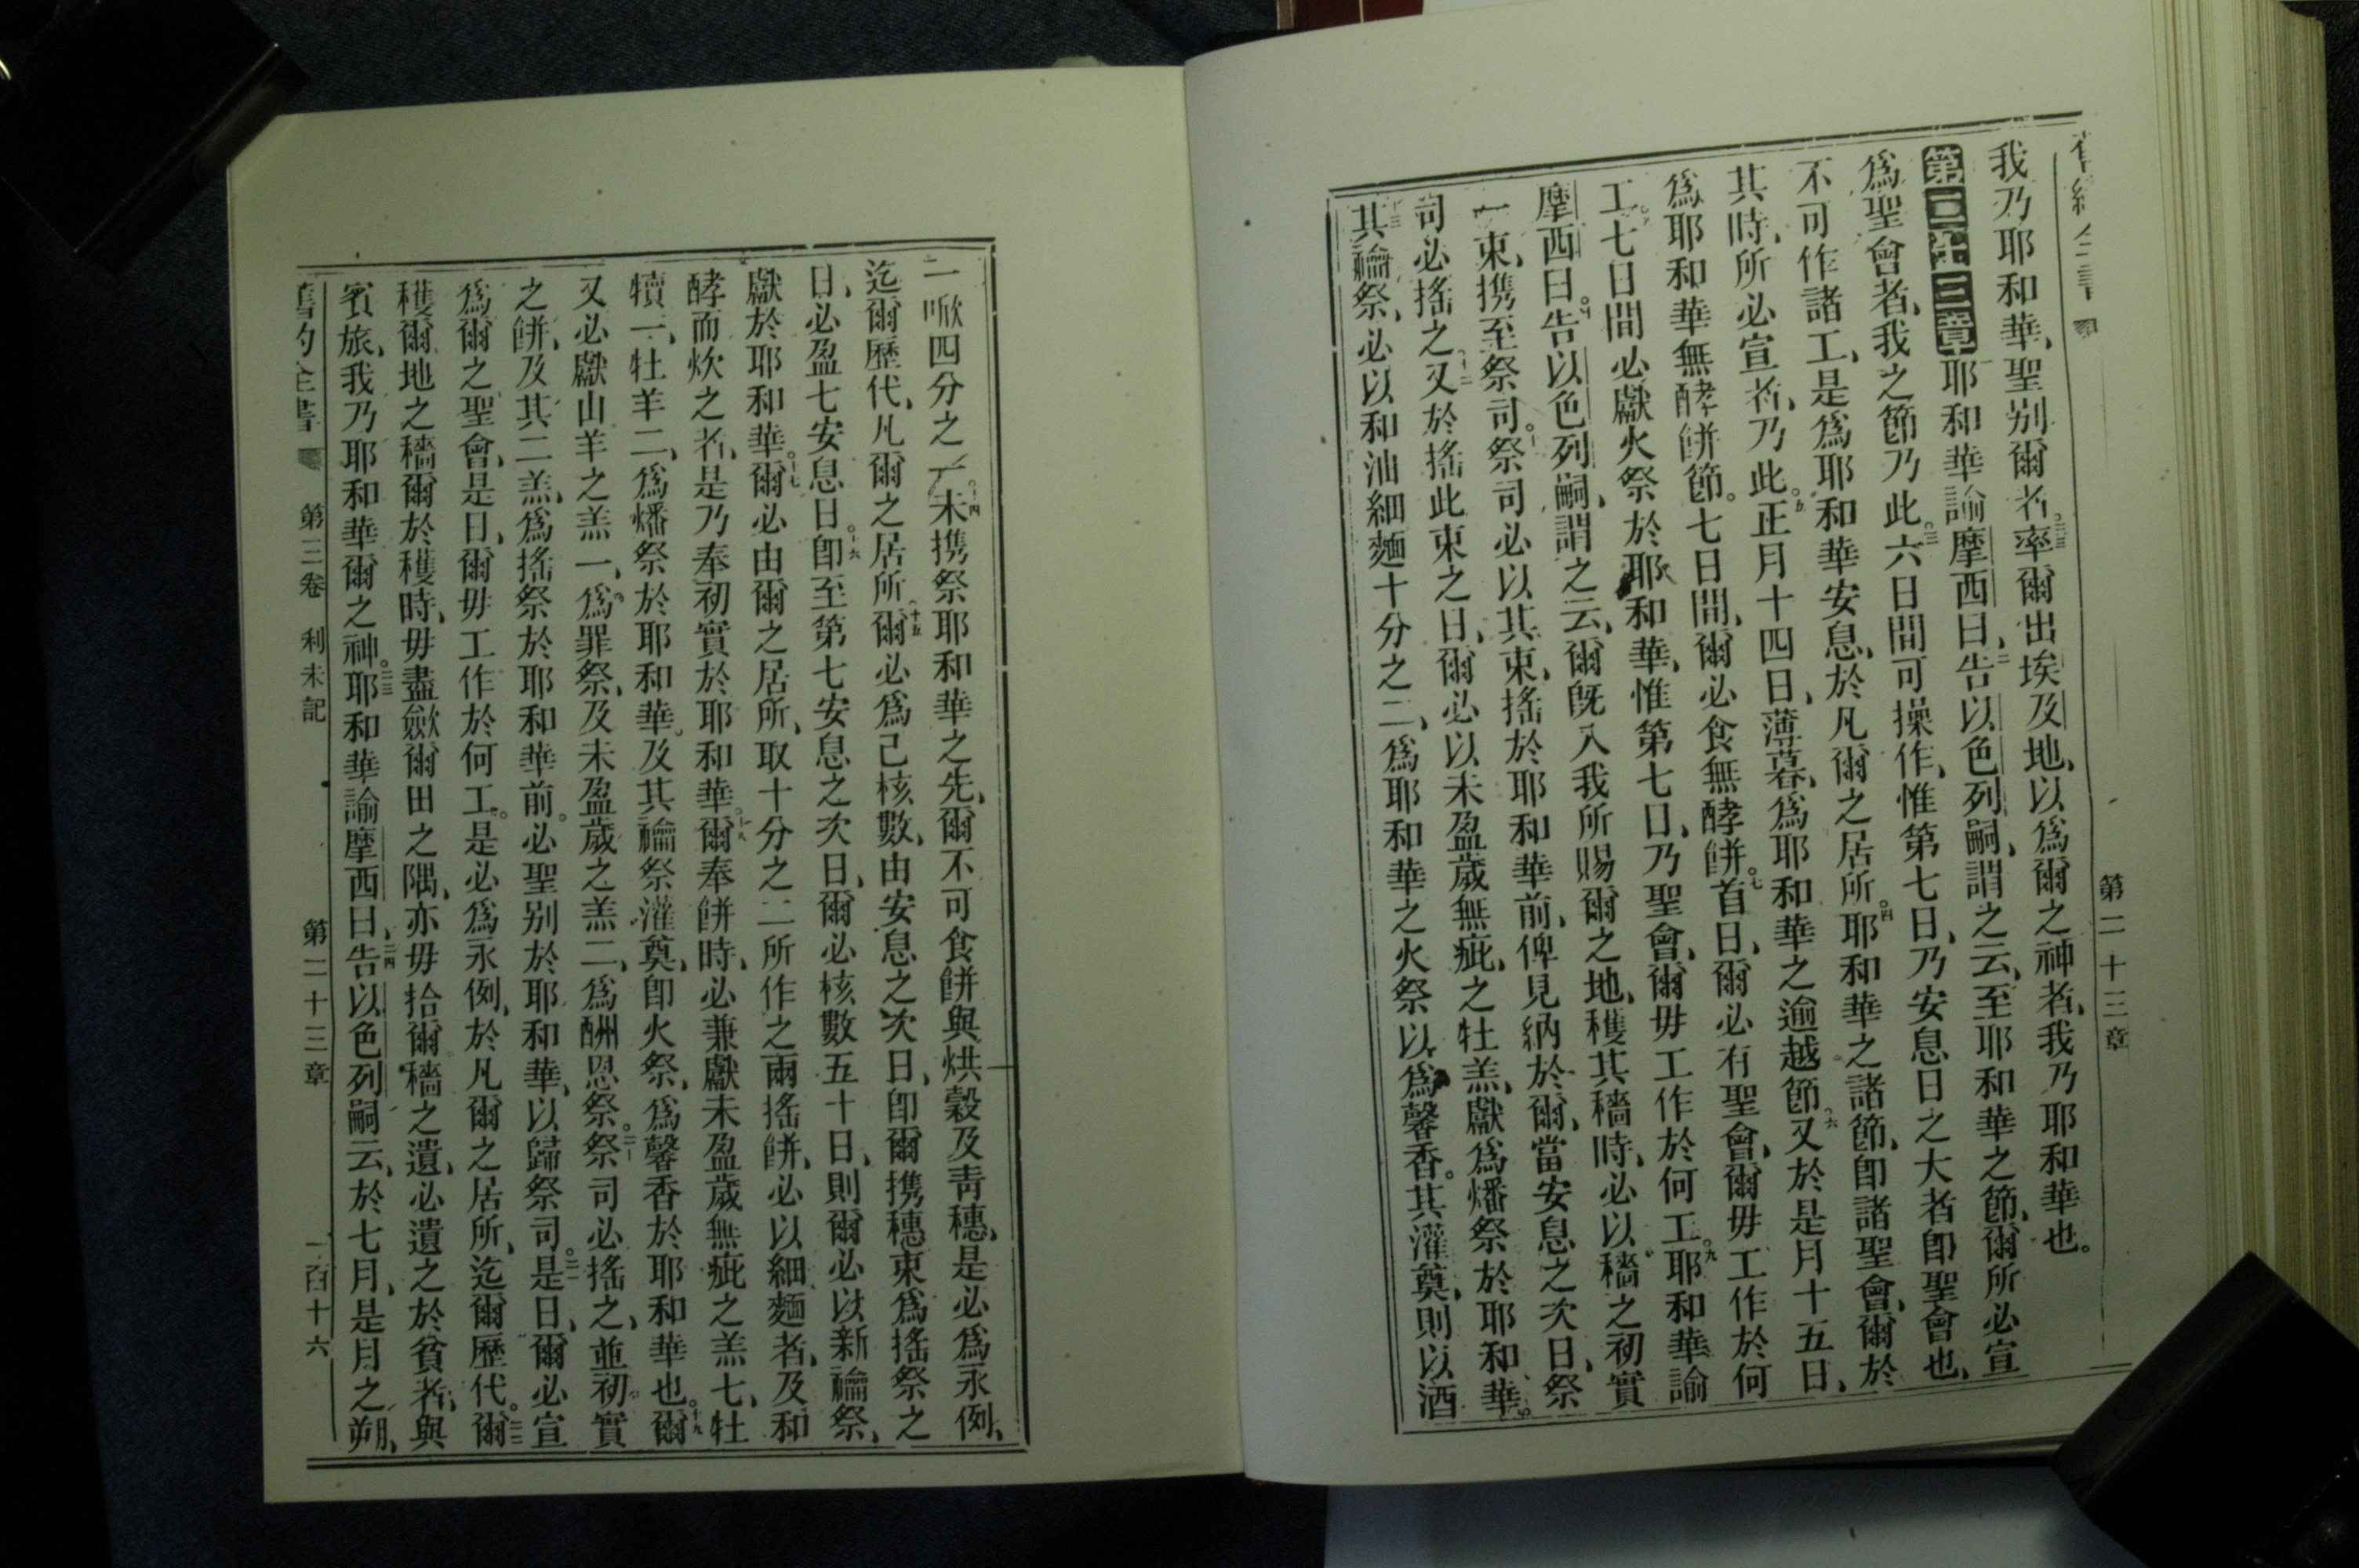 第二十三章
我乃耶和華、聖別爾者。三三率爾出埃及地、以爲爾之神者、我乃耶和華也。
第二十三章耶和華諭摩西曰、二告以色列嗣、謂之云、至耶和華之節、爾所必宣
爲聖會者、我之節乃此。三六日間可操作、惟第七日、乃安息日之大者卽聖會也、
不可作諸工、是爲耶和華安息、於凡爾之居所。四耶和華之諸節、卽諸聖會、爾於
其時、所必宣者、乃此。五正月十四日、薄暮、爲耶和華之逾越節、六又於是月十五日、
爲耶和華無酵餅節。七日間、爾必食無酵餅。七首日、爾必有聖會、爾毋工作於何
工。八七日間必獻火祭於耶和華、惟第七日、乃聖會、爾毋工作於何工。九耶和華諭
摩西曰。十告以色列嗣、謂之云、爾旣入我所賜爾之地、穫其穡時、必以穡之初實
一束、携至祭司。十一祭司必以其束、搖於耶和華前、俾見納於爾、當安息之次日、祭
司必搖之、十二又於搖此束之日、爾必以未盈歲無疵、之牡羔、獻爲燔祭於耶和華。
十三其禴祭、必以和油細麵十分之二、爲耶和華之火祭以爲馨香。其灌奠、則以酒
一㖞四分之一。十四未携祭耶和華之先、爾不可食餅與烘穀及靑穗、是必爲永例、
迄爾歷代、凡爾之居所、十五爾必爲己核數、由安息之次日、卽爾携穗束爲搖祭之
日、必盈七安息日。十六卽至第七安息之次日、爾必核數五十日、則爾必以新禴祭、
獻於耶和華。十七爾必由爾之居所、取十分之二所作之兩搖餅、必以細麵者、及和
酵而炊之者、是乃奉初實於耶和華。十八爾奉餅時、必兼獻未盈歲無疵之羔七、牡
犢一、牡羊二、爲燔祭於耶和華。及其禴祭灌奠、卽火祭、爲馨香於耶和華也。十九爾
又必獻山羊之羔一、爲罪祭、及未盈歲之羔二、爲酬恩祭。二十祭司必搖之、並初實
之餅、及其二羔、爲搖祭於耶和華前。必聖別於耶和華、以歸祭司。二一是日、爾必宣
爲爾之聖會、是日、爾毋工作於何工。是必爲永例、於凡爾之居所、迄爾歷代。二二爾
穫爾地之穡爾於穫時、毋盡歛爾田之隅、亦毋拾爾穡之遺、必遺之於貧者、與
賓旅、我乃耶和華爾之神。二三耶和華諭摩西曰、二四告以色列嗣云、於七月、是月之朔、
舊約全書 第三卷 利未記 第二十三章 一百十六